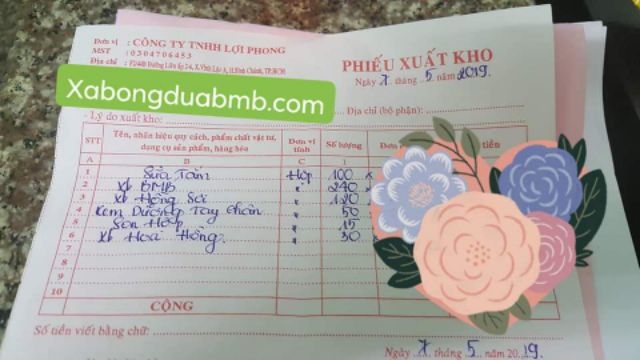 Đơn vị : CÔNG TY TNHH LỢI PHONG
MST : 0304706453
Địa chỉ :
PHIẾU XUẤT KHO
Ngày 7 tháng 5 năm 2019.
Xabongduabmb.com
- Lý do xuất kho: Địa chỉ (bộ phận):
STT Tên, nhãn hiệu quy cách, phẩm chất vật tư, dụng cụ sản phẩm, hàng hóa Đơn vị tính Số lượng Đơn tiền
A B C 1
1 Sữa Tắm Hộp 100
2 xb BMB " 240
3 xb Hồng Sơi " 120
4 Kem Dưỡng Tay Chân " 50
5 Son " 15
6 xb Hoa Hồng " 30
7
8
9
10
CỘNG
Số tiền viết bằng chữ:
Ngày 7 tháng 5 năm 2019.